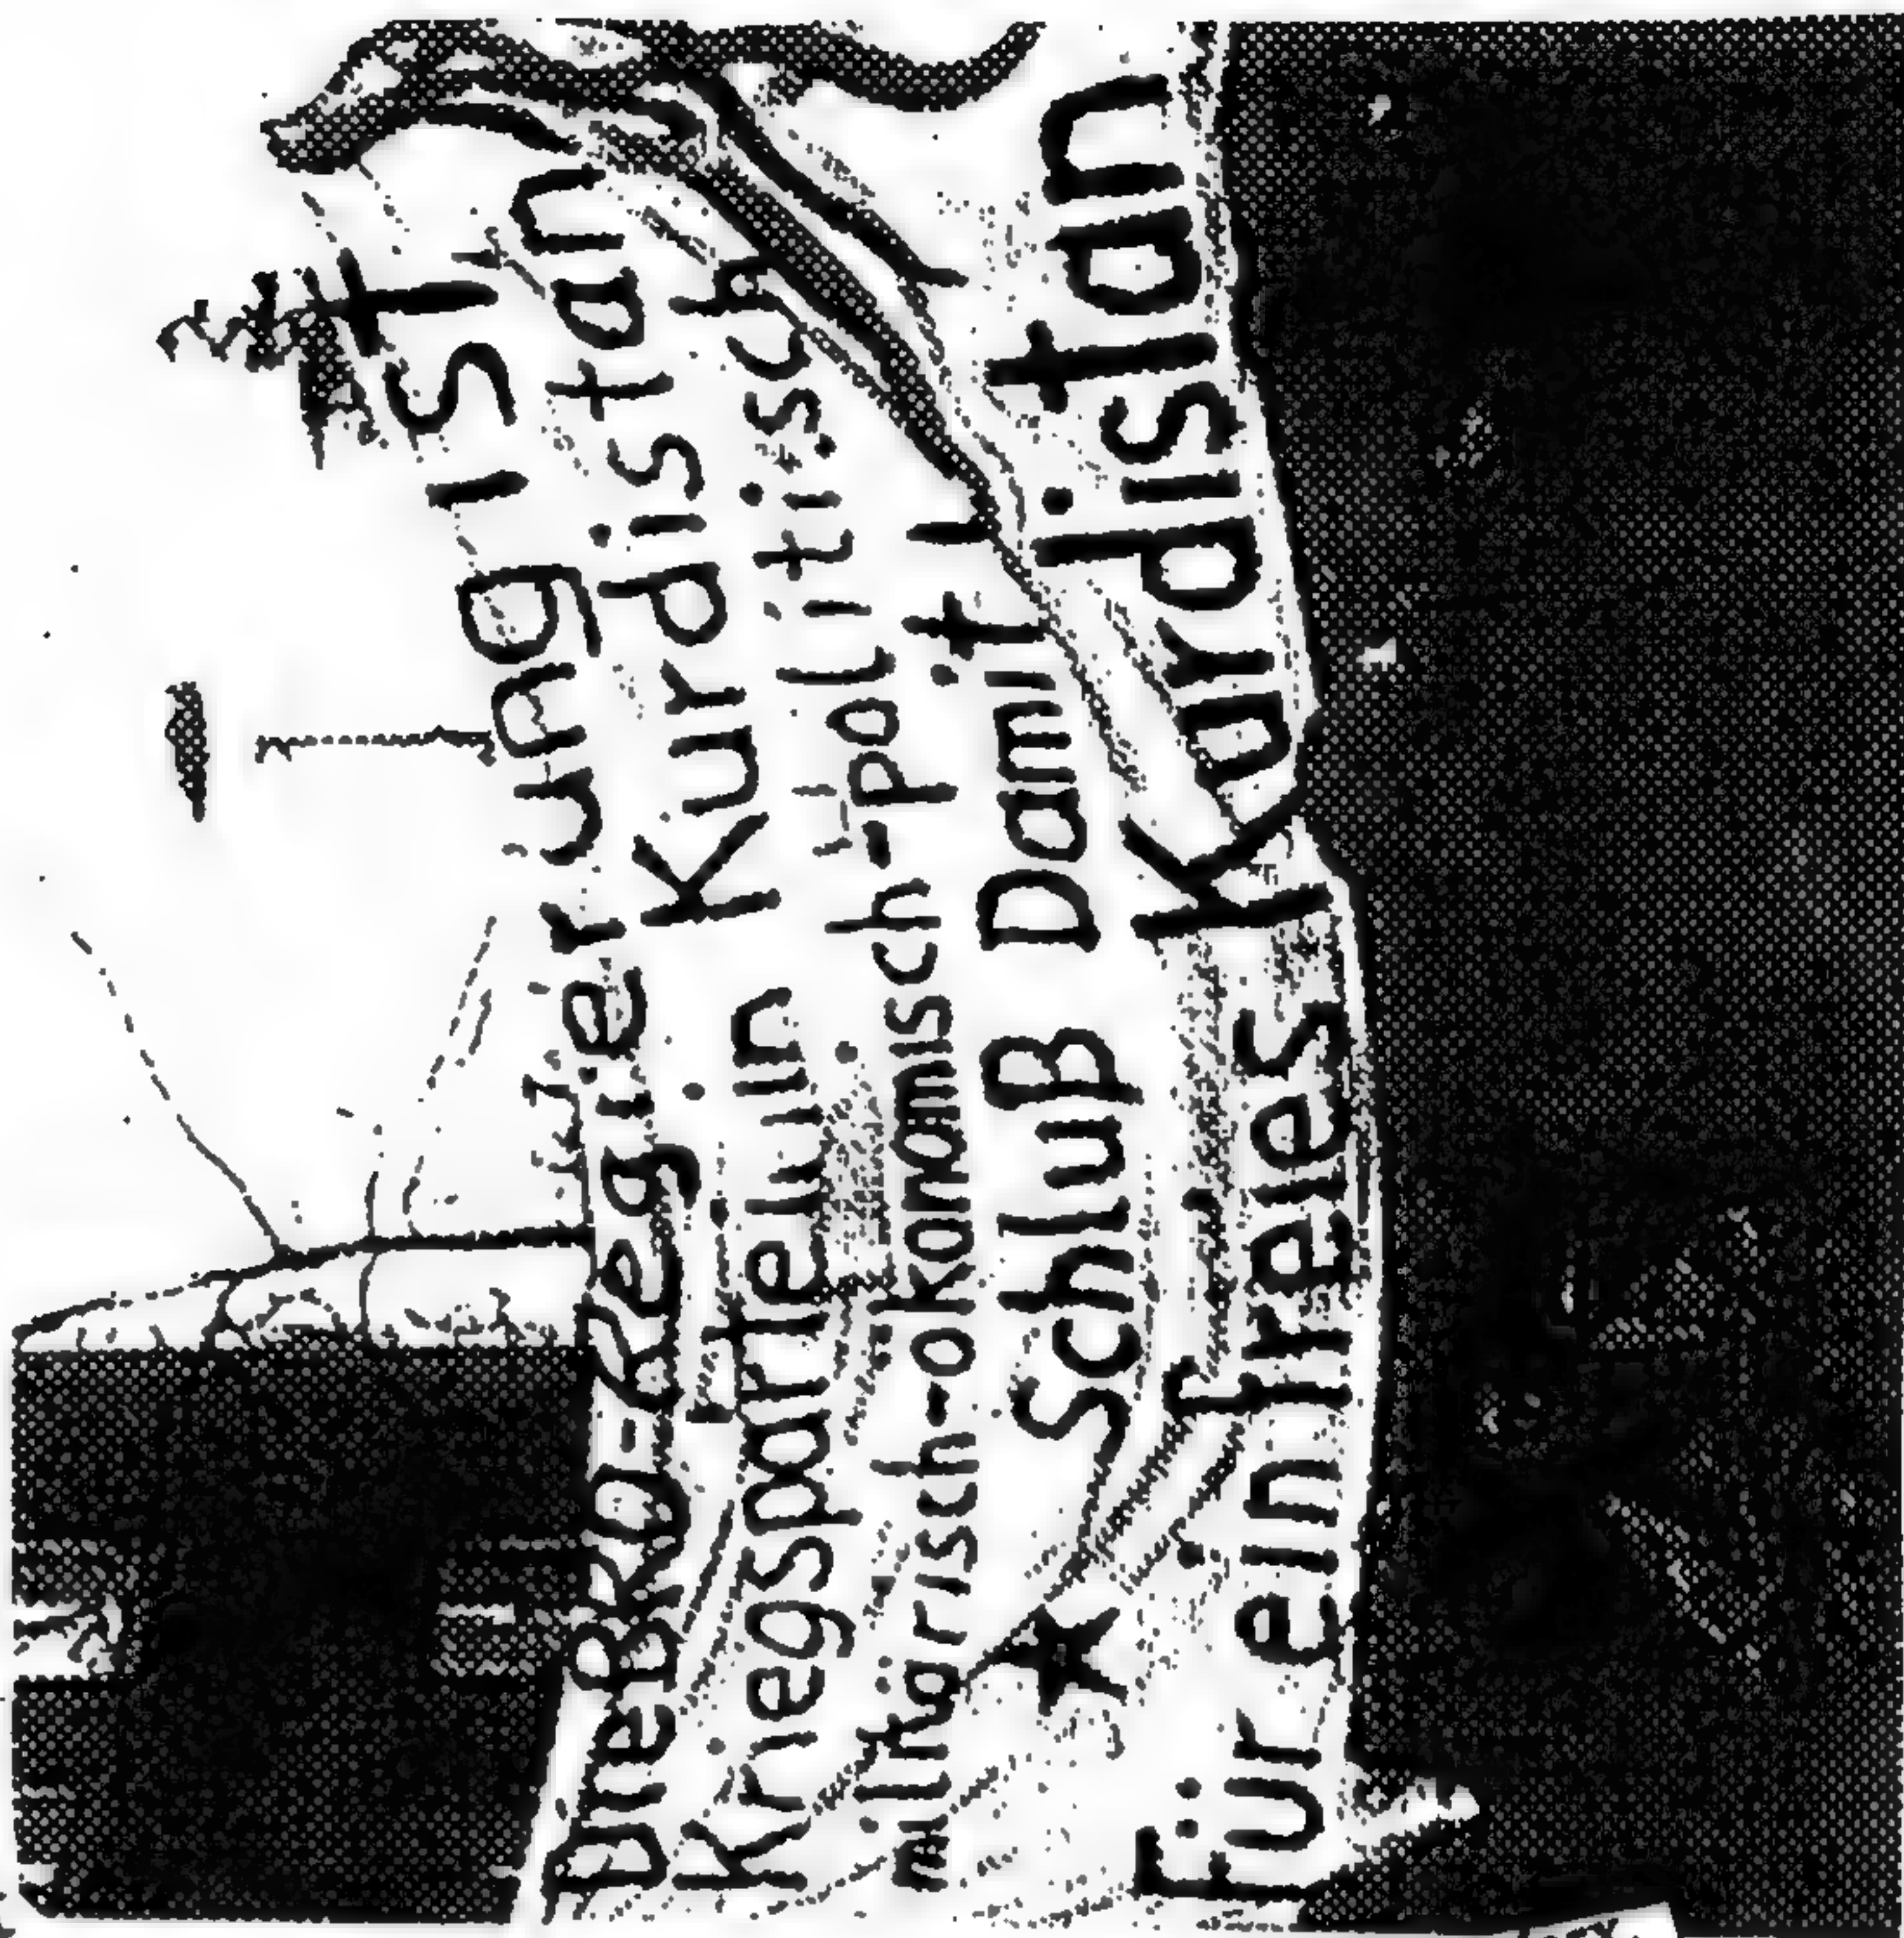 Die BRD-Regierung ist
Kriegspartei in Kurdistan
militärisch-ökonomisch-politisch
Schluß Damit !
Für ein freies Kurdistan